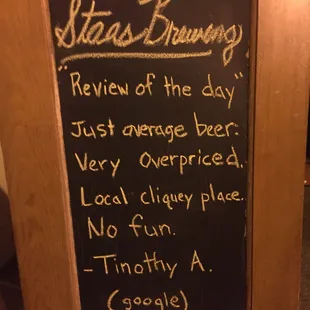 Staas Brewing
"Review of the day"
Just average beer.
Very Overpriced.
Local cliquey place.
No fun.
-Tinothy A.
(google)